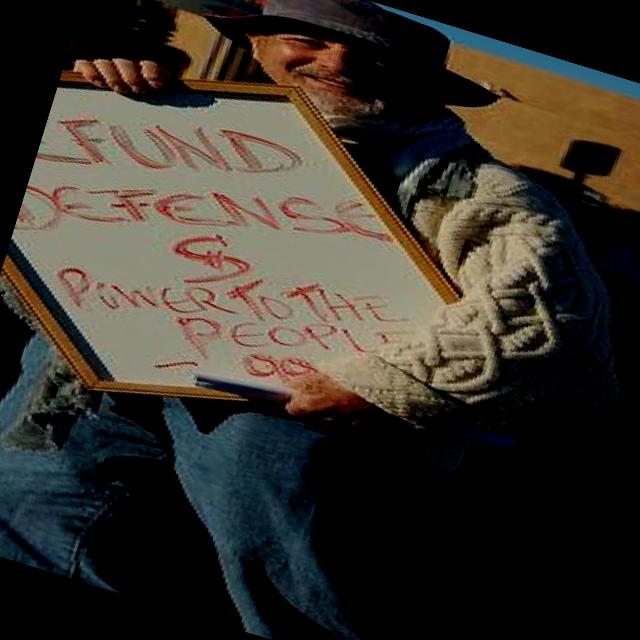 FUND
DEFENSE
$
POWER TO THE
PEOPLE
- 99